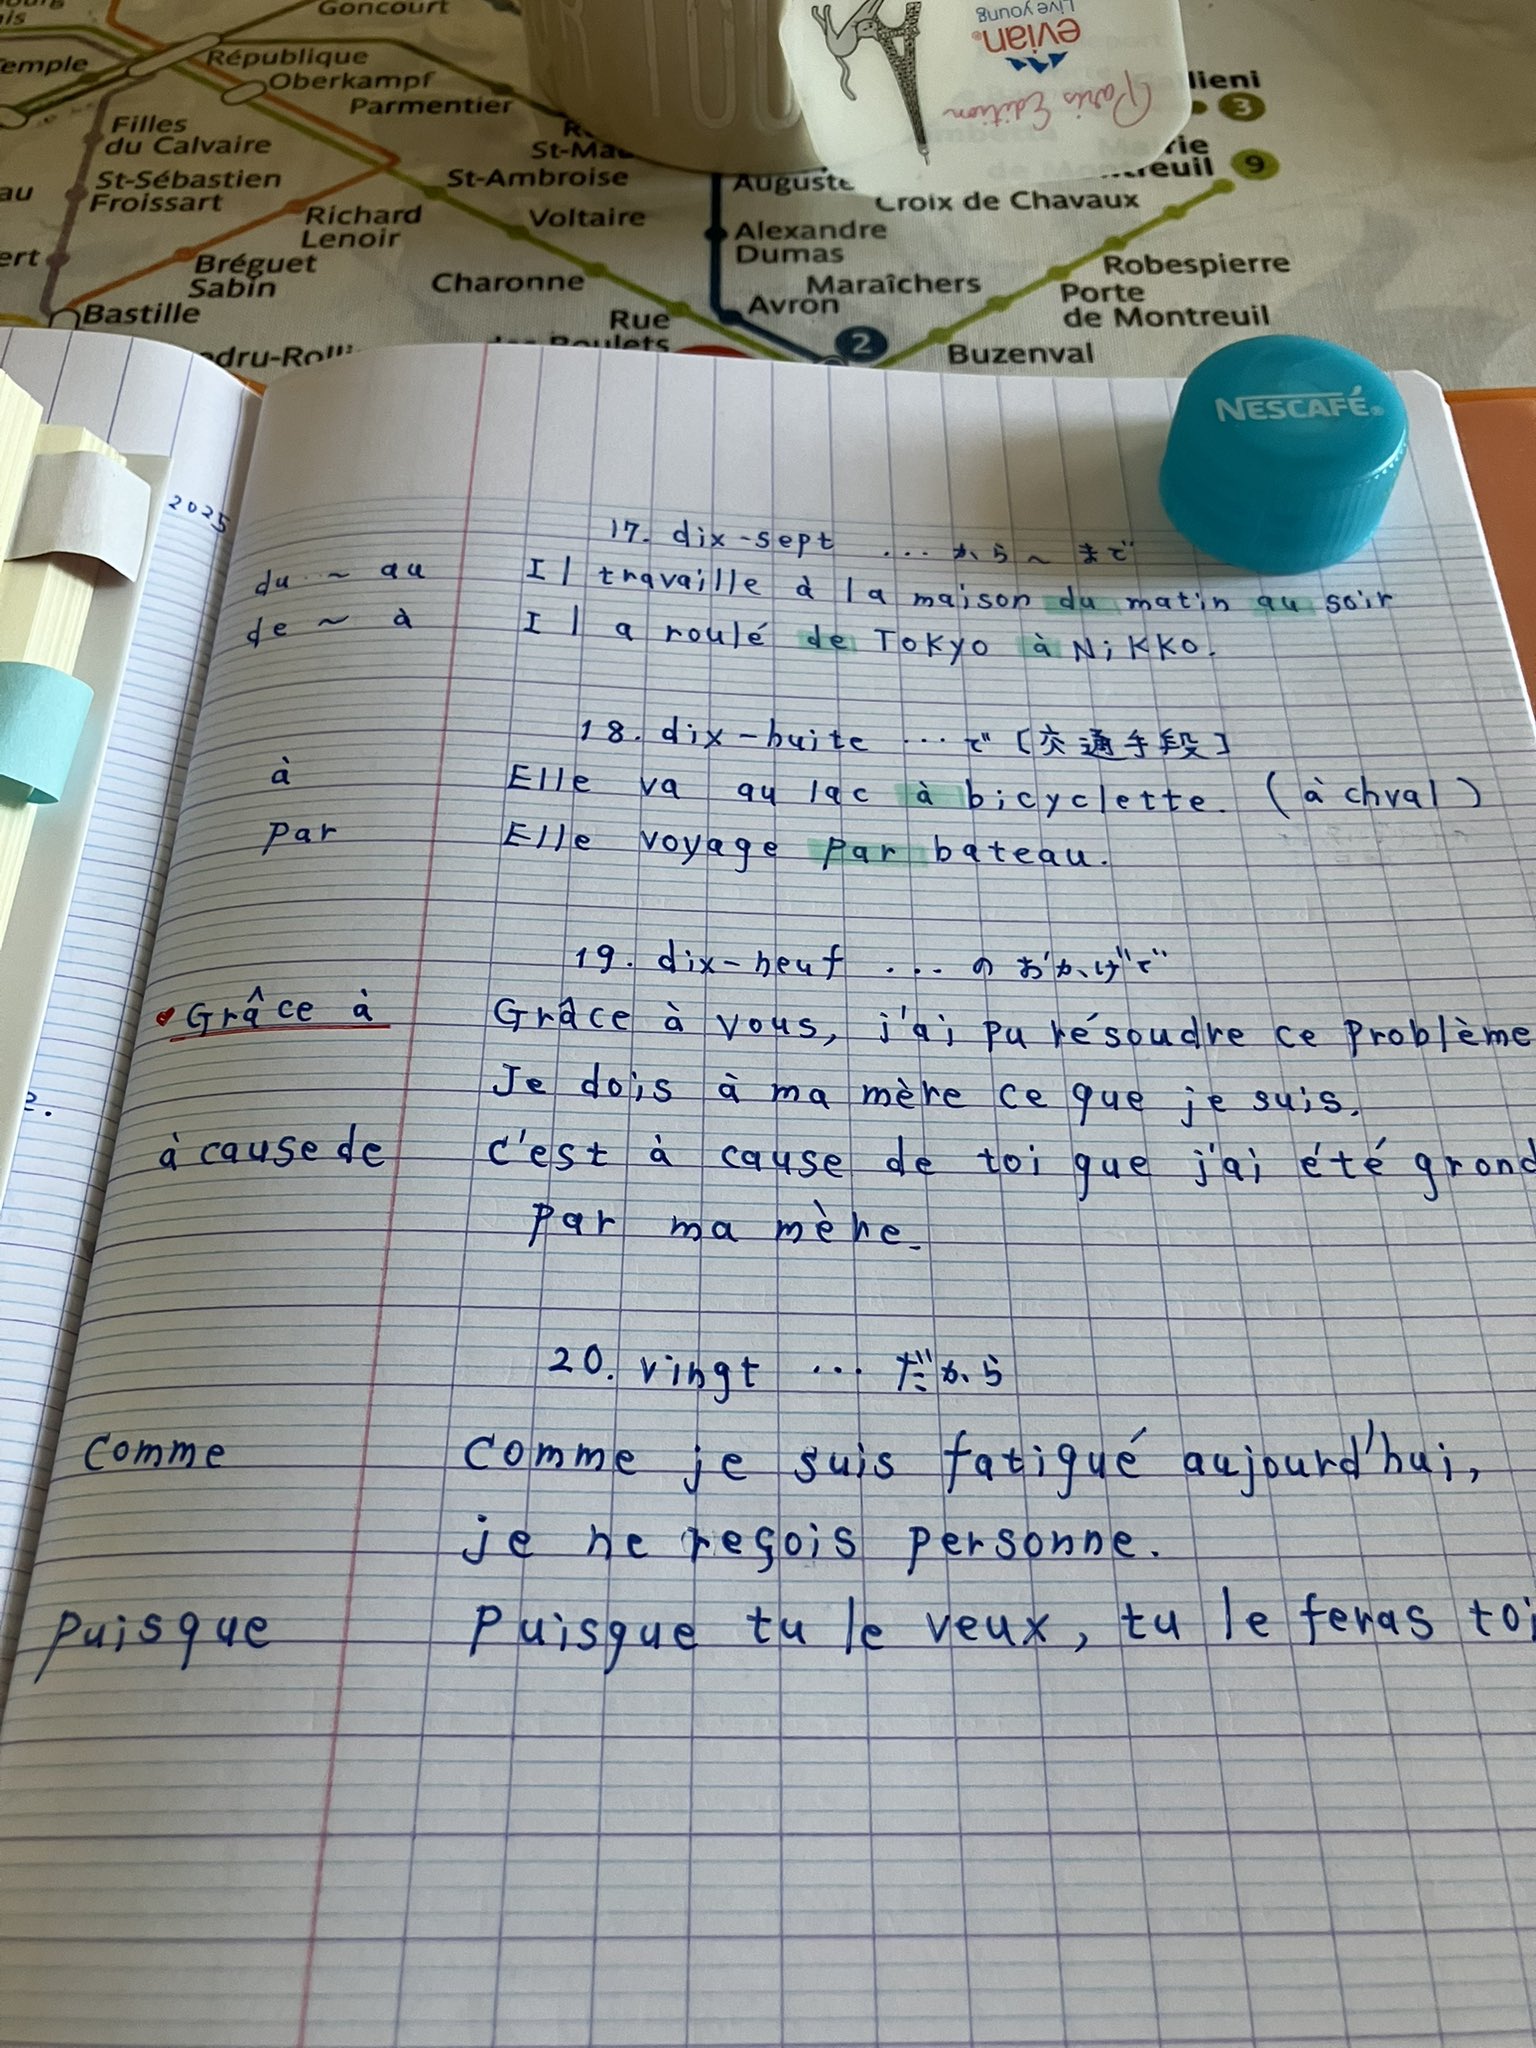 Goncourt
Temple
République
Oberkampf
Parmentier
Filles
du Calvaire
St-Sébastien
Froissart
St-Ambroise
Richard
Lenoir
Voltaire
Bréguet
Sabin
Bastille
Charonne
Rue
Alexandre
Dumas
Avron
Maraîchers
Croix de Chavaux
Robespierre
Porte
de Montreuil
Buzenval
2
3
9
evian
Live young
Paris Edition
NESCAFÉ
2025
17. dix-sept ... から~まで
du ~ au Il travaille à la maison du matin au soir
de ~ à Il a roulé de TOKYO à NiKKO.
18. dix-huite ... で [交通手段]
à Elle va au lac à bicyclette. (à chval)
par Elle voyage par bateau.
19. dix-neuf ... のおかげで
Grâce à Grâce à vous, j'ai pu résoudre ce problème
Je dois à ma mère ce que je suis.
à cause de c'est à cause de toi que j'ai été grond
par ma mère.
20. vingt ... だから
Comme Comme je suis fatigué aujourd'hui,
je ne reçois personne.
puisque Puisque tu le veux, tu le feras toi